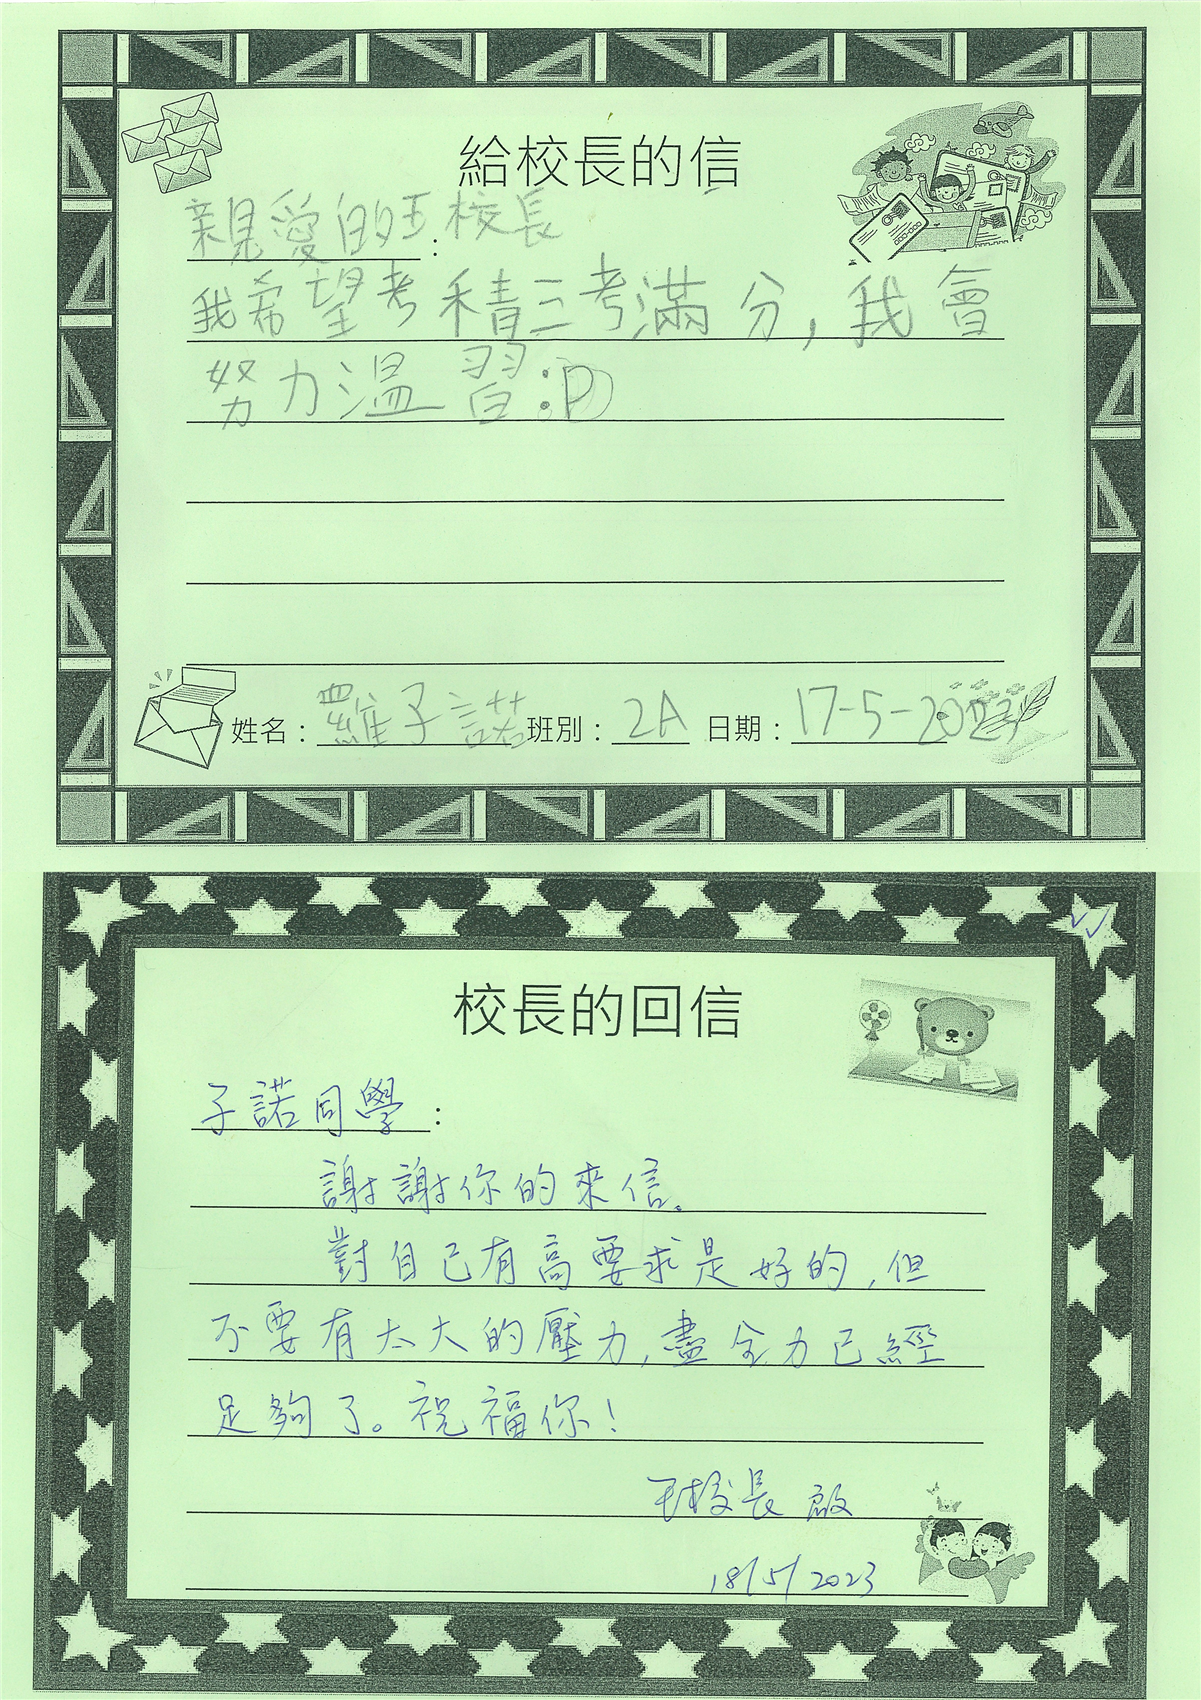 給校長的信
親愛的王校長
:
我希望考積三考滿分,我會
努力溫習:P
姓名：羅子諾 班別：2A 日期：17-5-2023
校長的回信
子諾同學：
謝謝你的來信。
對自己有高要求是好的,但
不要有太大的壓力,盡全力已經
足夠了。祝福你!
王校長 啟
18/5/2023